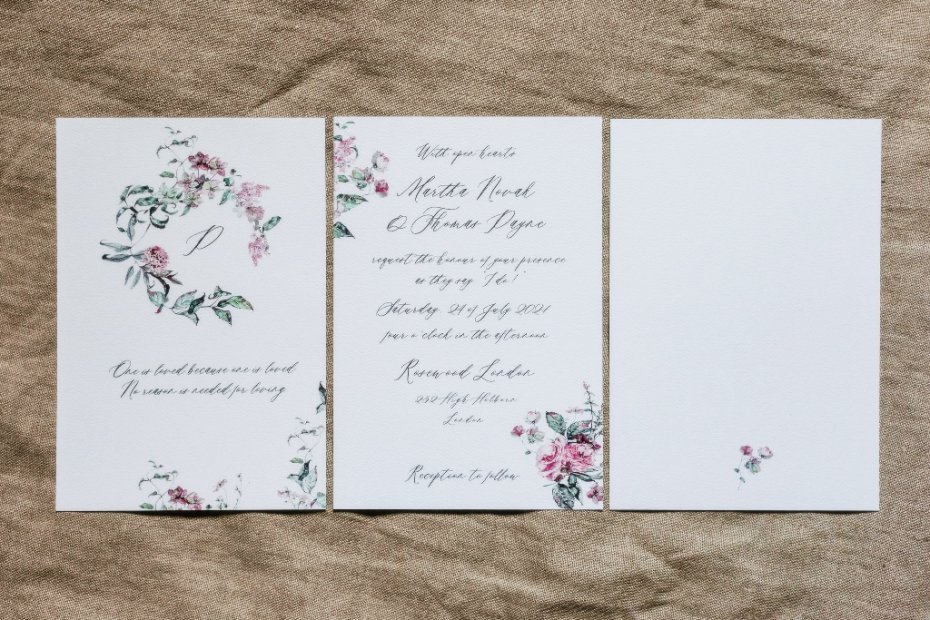 P
One is loved because one is loved
No reason is needed for loving
With open hearts
Martha Novak
& Thomas Payne
request the honour of your presence
as they say 'I do!'
Saturday, 24 of July 2021
four o'clock in the afternoon
Rosewood London
252 High Holborn
London
Reception to follow